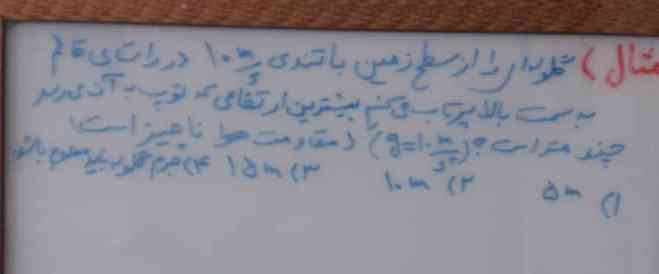 مثال) گلوله‌ای را از سطح زمین با تندی ۱۰ m/s در راستای قائم
به سمت بالا پرتاب می‌کنیم بیشترین ارتفاعی که توپ به آن می‌رسد
چند متر است؟ (g=۱۰ m/s²) (مقاومت هوا ناچیز است)
۱) ۵m ۲) ۱۰m ۳) ۱۵m ۴) جرم گلوله باید معلوم باشد